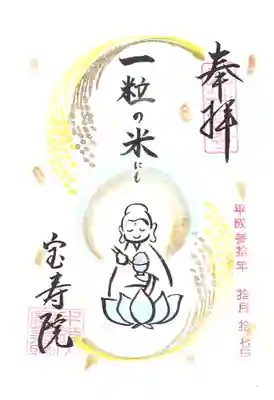 奉拝
平成参拾年 拾月 拾七日
一粒の米にも
宝寿院